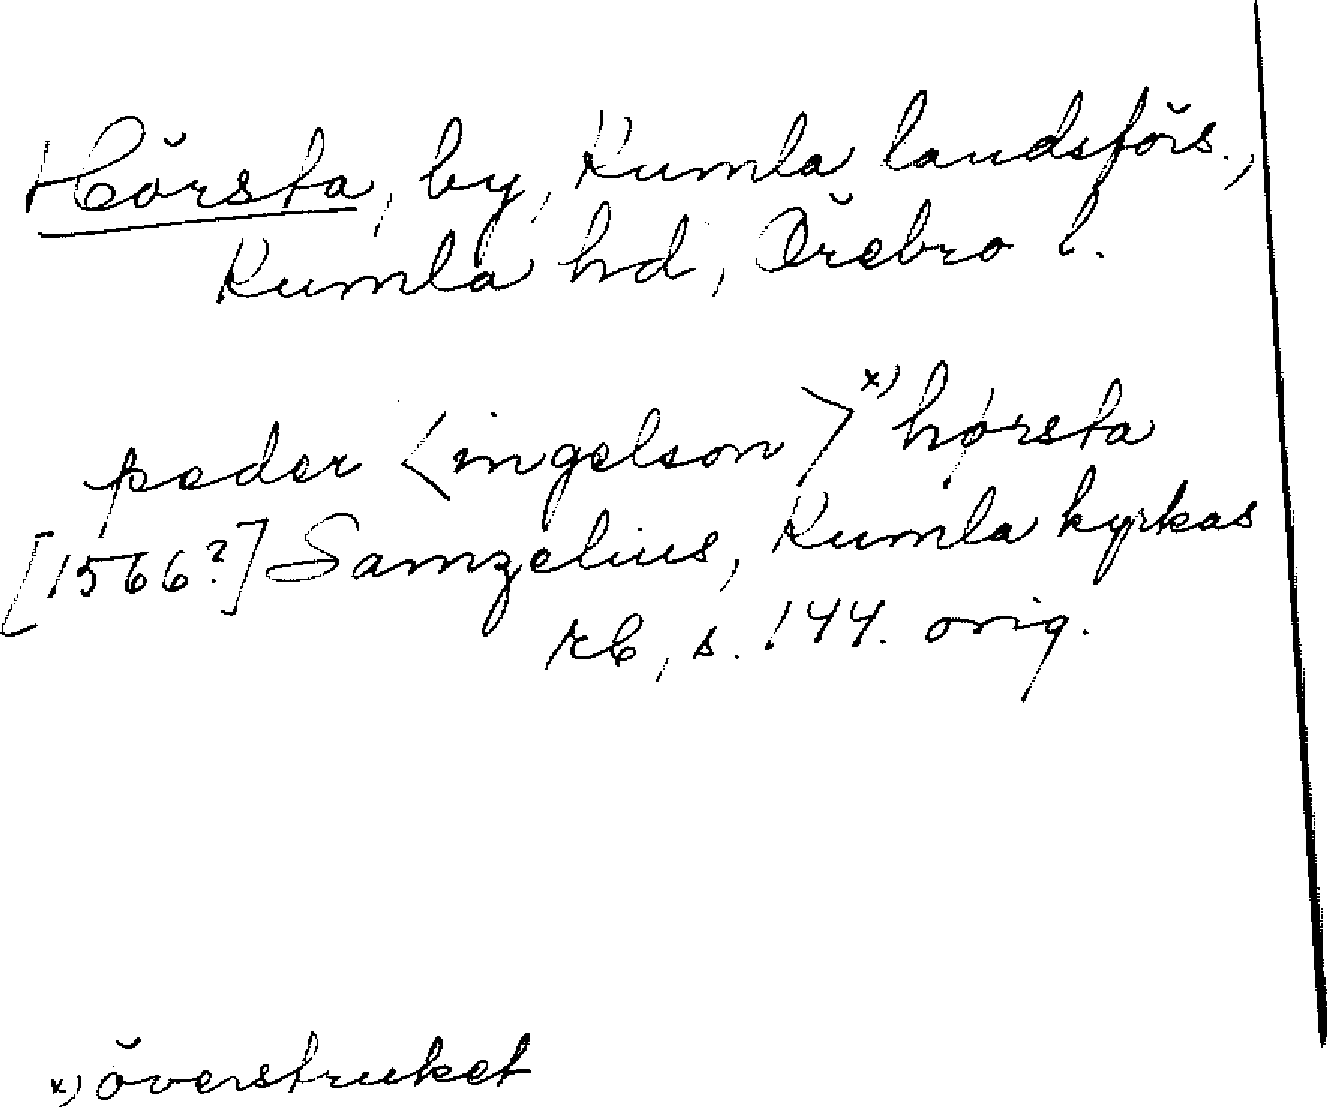 Hörsta, by, Kumla landsförs.,
Kumla hd, Örebro l.
peder <ingelson> x) hørsta
[1566?] Samzelius, Kumla kyrkas
rb, s. 144. orig.
x) överstruket